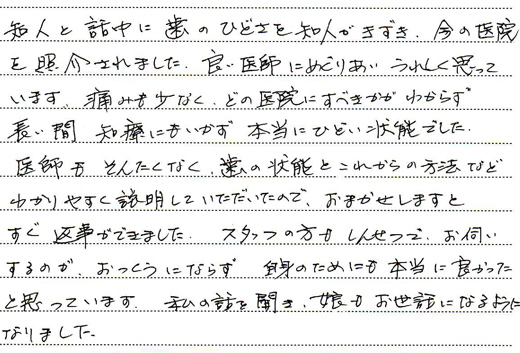 知人と話中に歯のひどさを知人がきずき、今の医院
を照介されました。良い医師にめぐりあいうれしく思って
います。痛みも少なく、どの医院にすべきかがわからず
長い間 知療にもいかず 本当にひどい状態でした。
医師も そんたくなく、歯の状態とこれからの方法など
わかりやすく説明していただいたので、おまかせしますと
すぐ返事ができました。 スタッフの方も しんせつで、お伺い
するのが、おっくうにならず 自身のためにも本当に良かった
と思っています。 私の話を聞き、娘もお世話になるように
なりました。